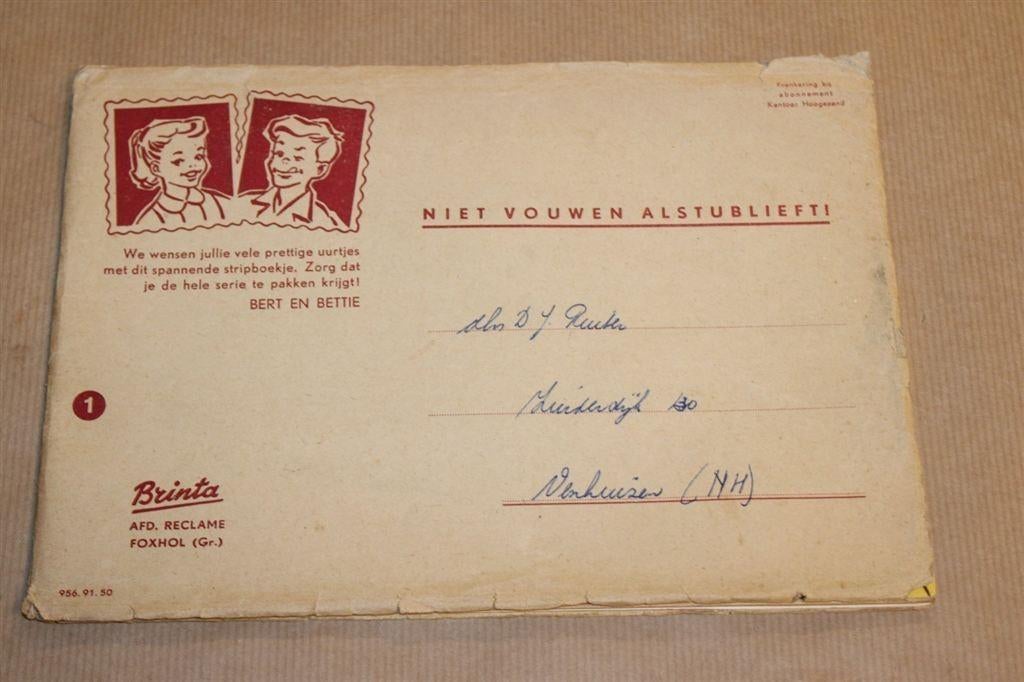 Frankering bij
abonnement
Kantoor Hoogezand
NIET VOUWEN ALSTUBLIEFT!
We wensen jullie vele prettige uurtjes
met dit spannende stripboekje. Zorg dat
je de hele serie te pakken krijgt!
BERT EN BETTIE
D J. Ruiter
Zuiderdijk 30
1
Venhuizen (NH)
Brinta
AFD. RECLAME
FOXHOL (Gr.)
956.91.50